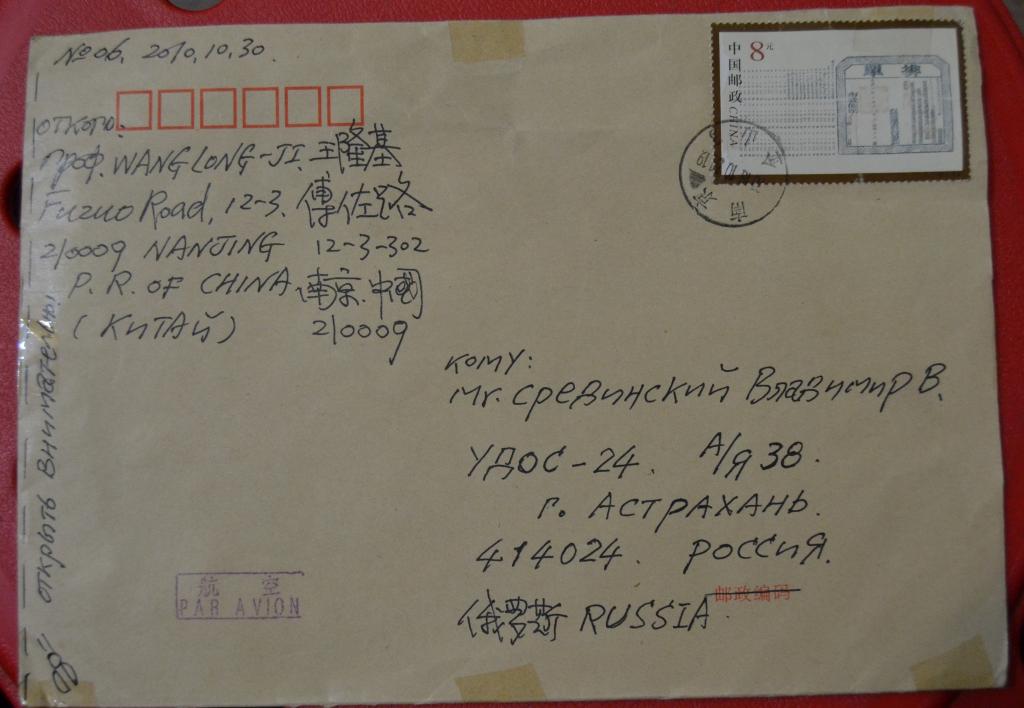 № 06, 2010.10.30.
中国邮政 CHINA
8元
откого:
Проф. WANG LONG-JI. 王隆基
Fuzuo Road, 12-3. 傅佐路
210009 NANJING 12-3-302
P. R. OF CHINA 南京.中國
(Китай) 210009
南京
кому:
Mr. Срединский Владимир В.
УДОС-24. А/Я 38.
г. АСТРАХАНЬ.
414024. РОССИЯ.
俄罗斯 RUSSIA
邮政编码
航空
PAR AVION
открыть внимательно